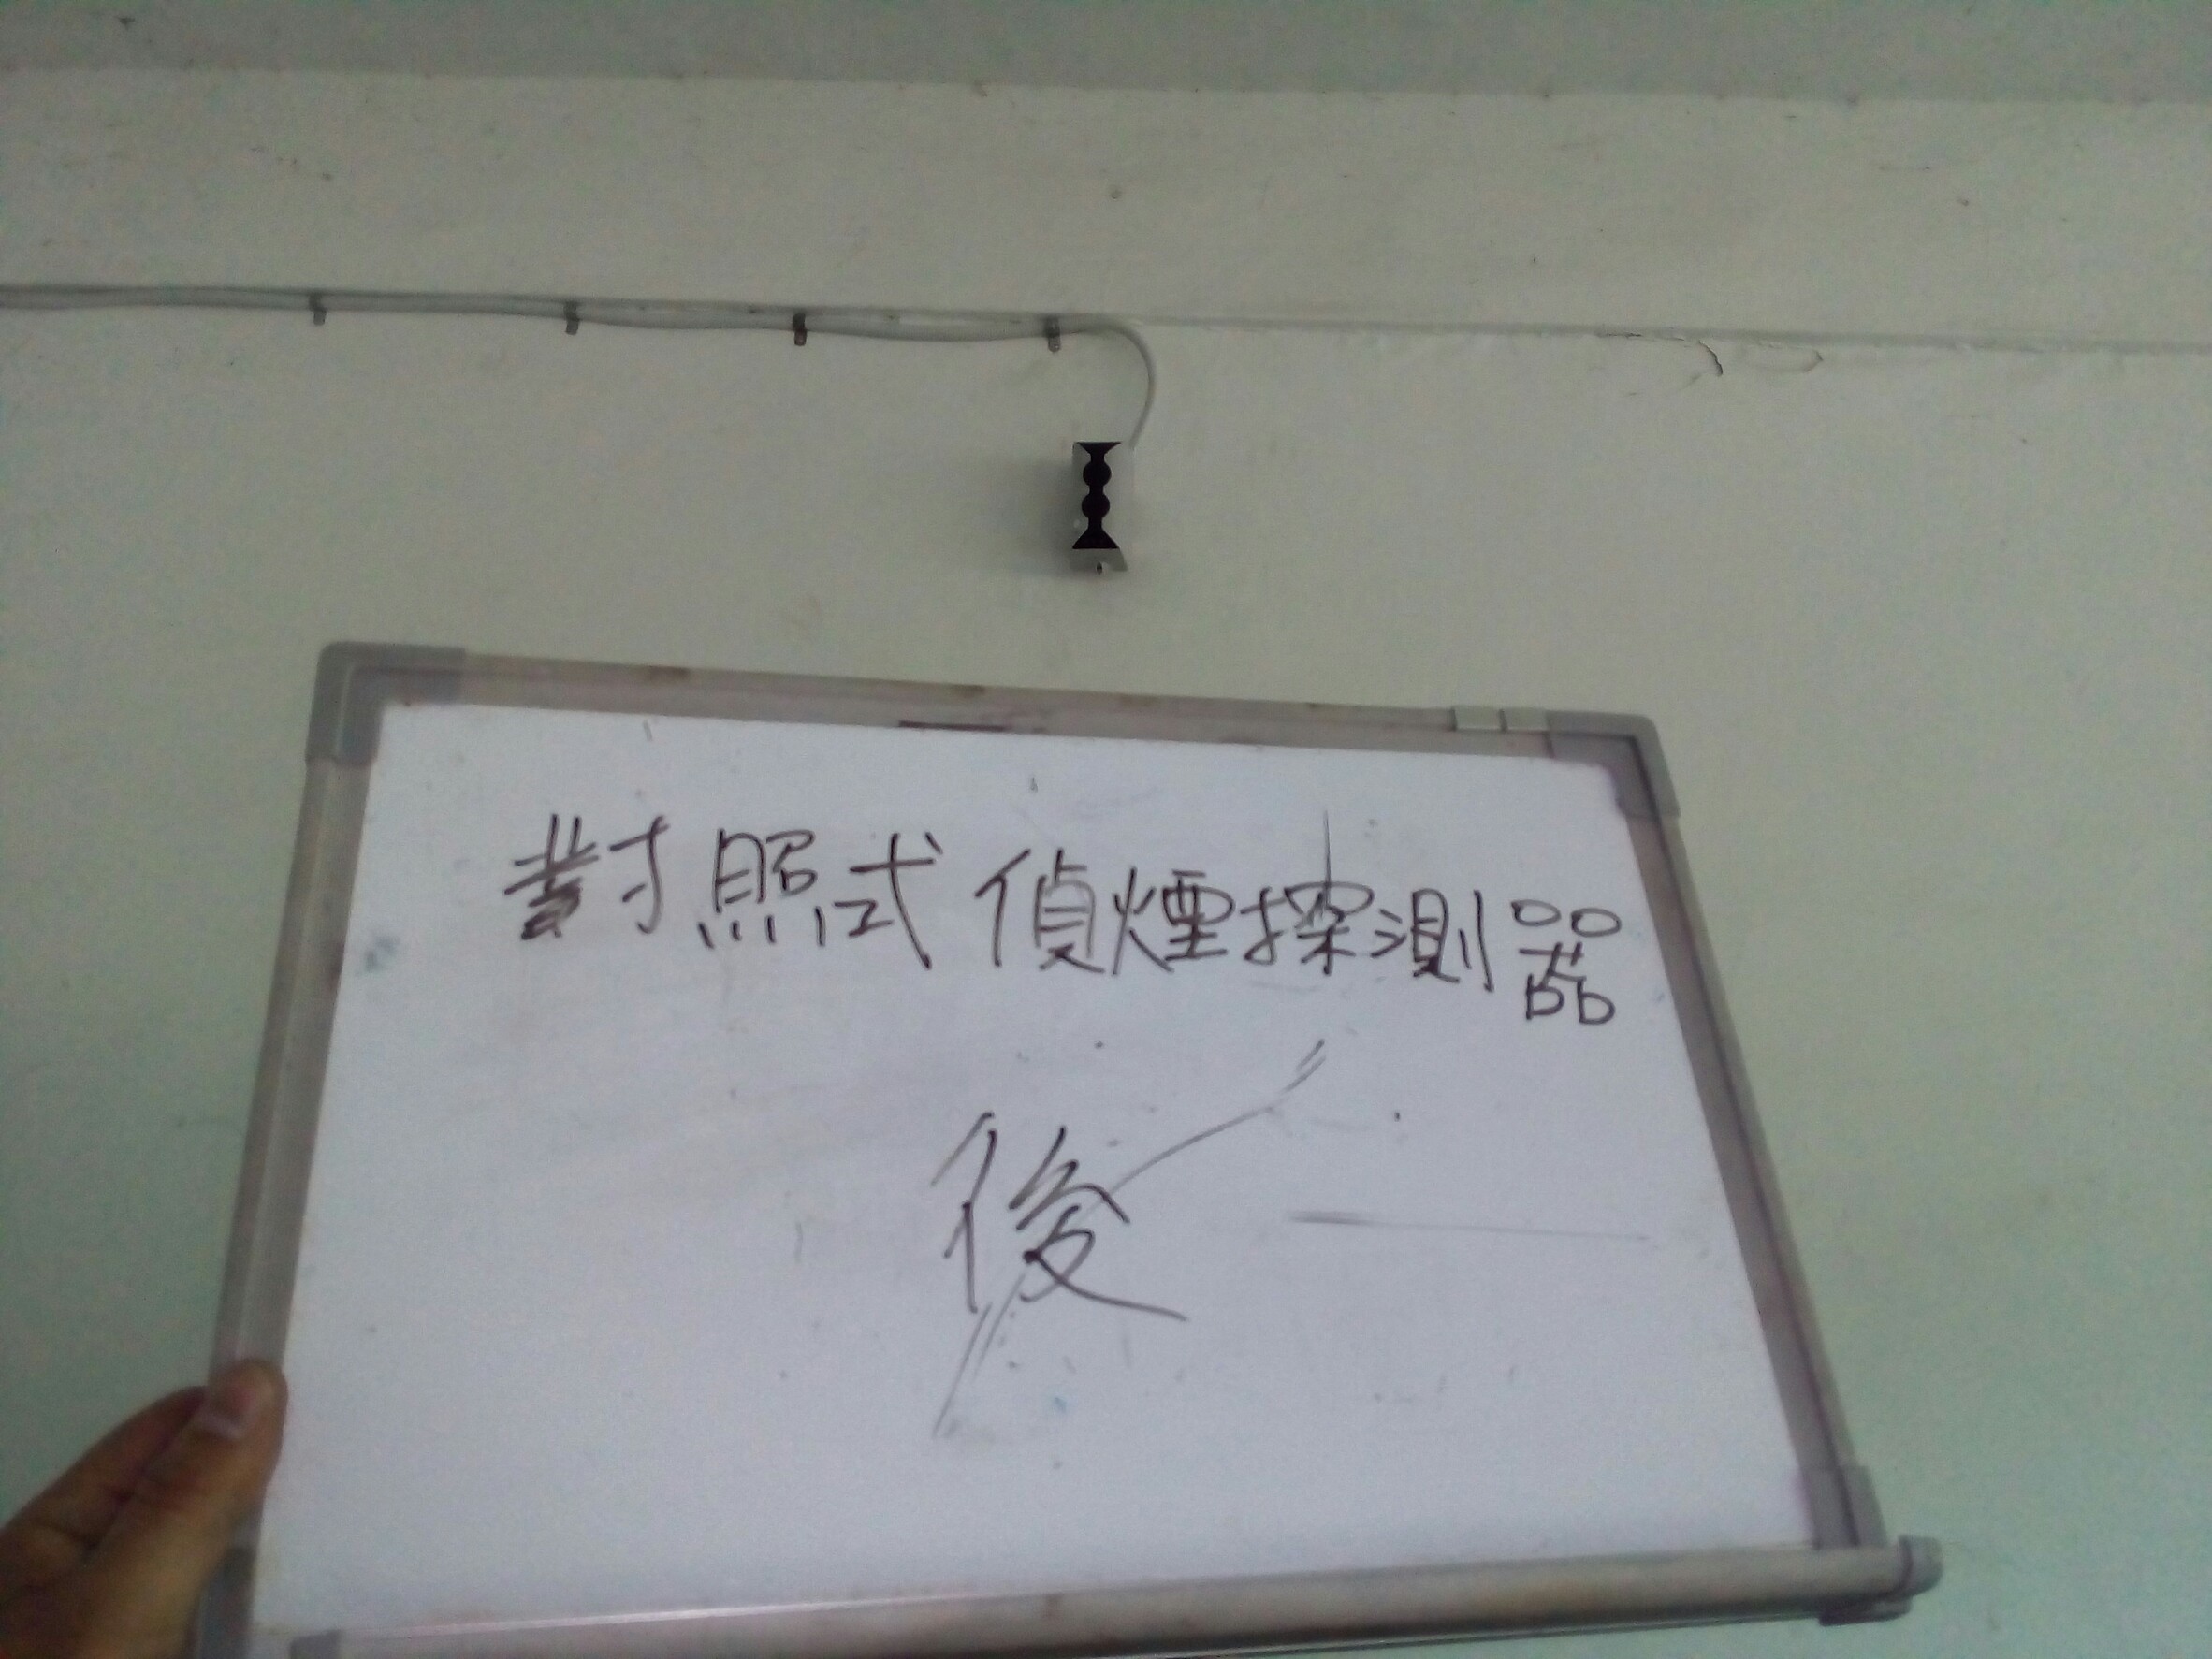 對照式偵煙探測器
後